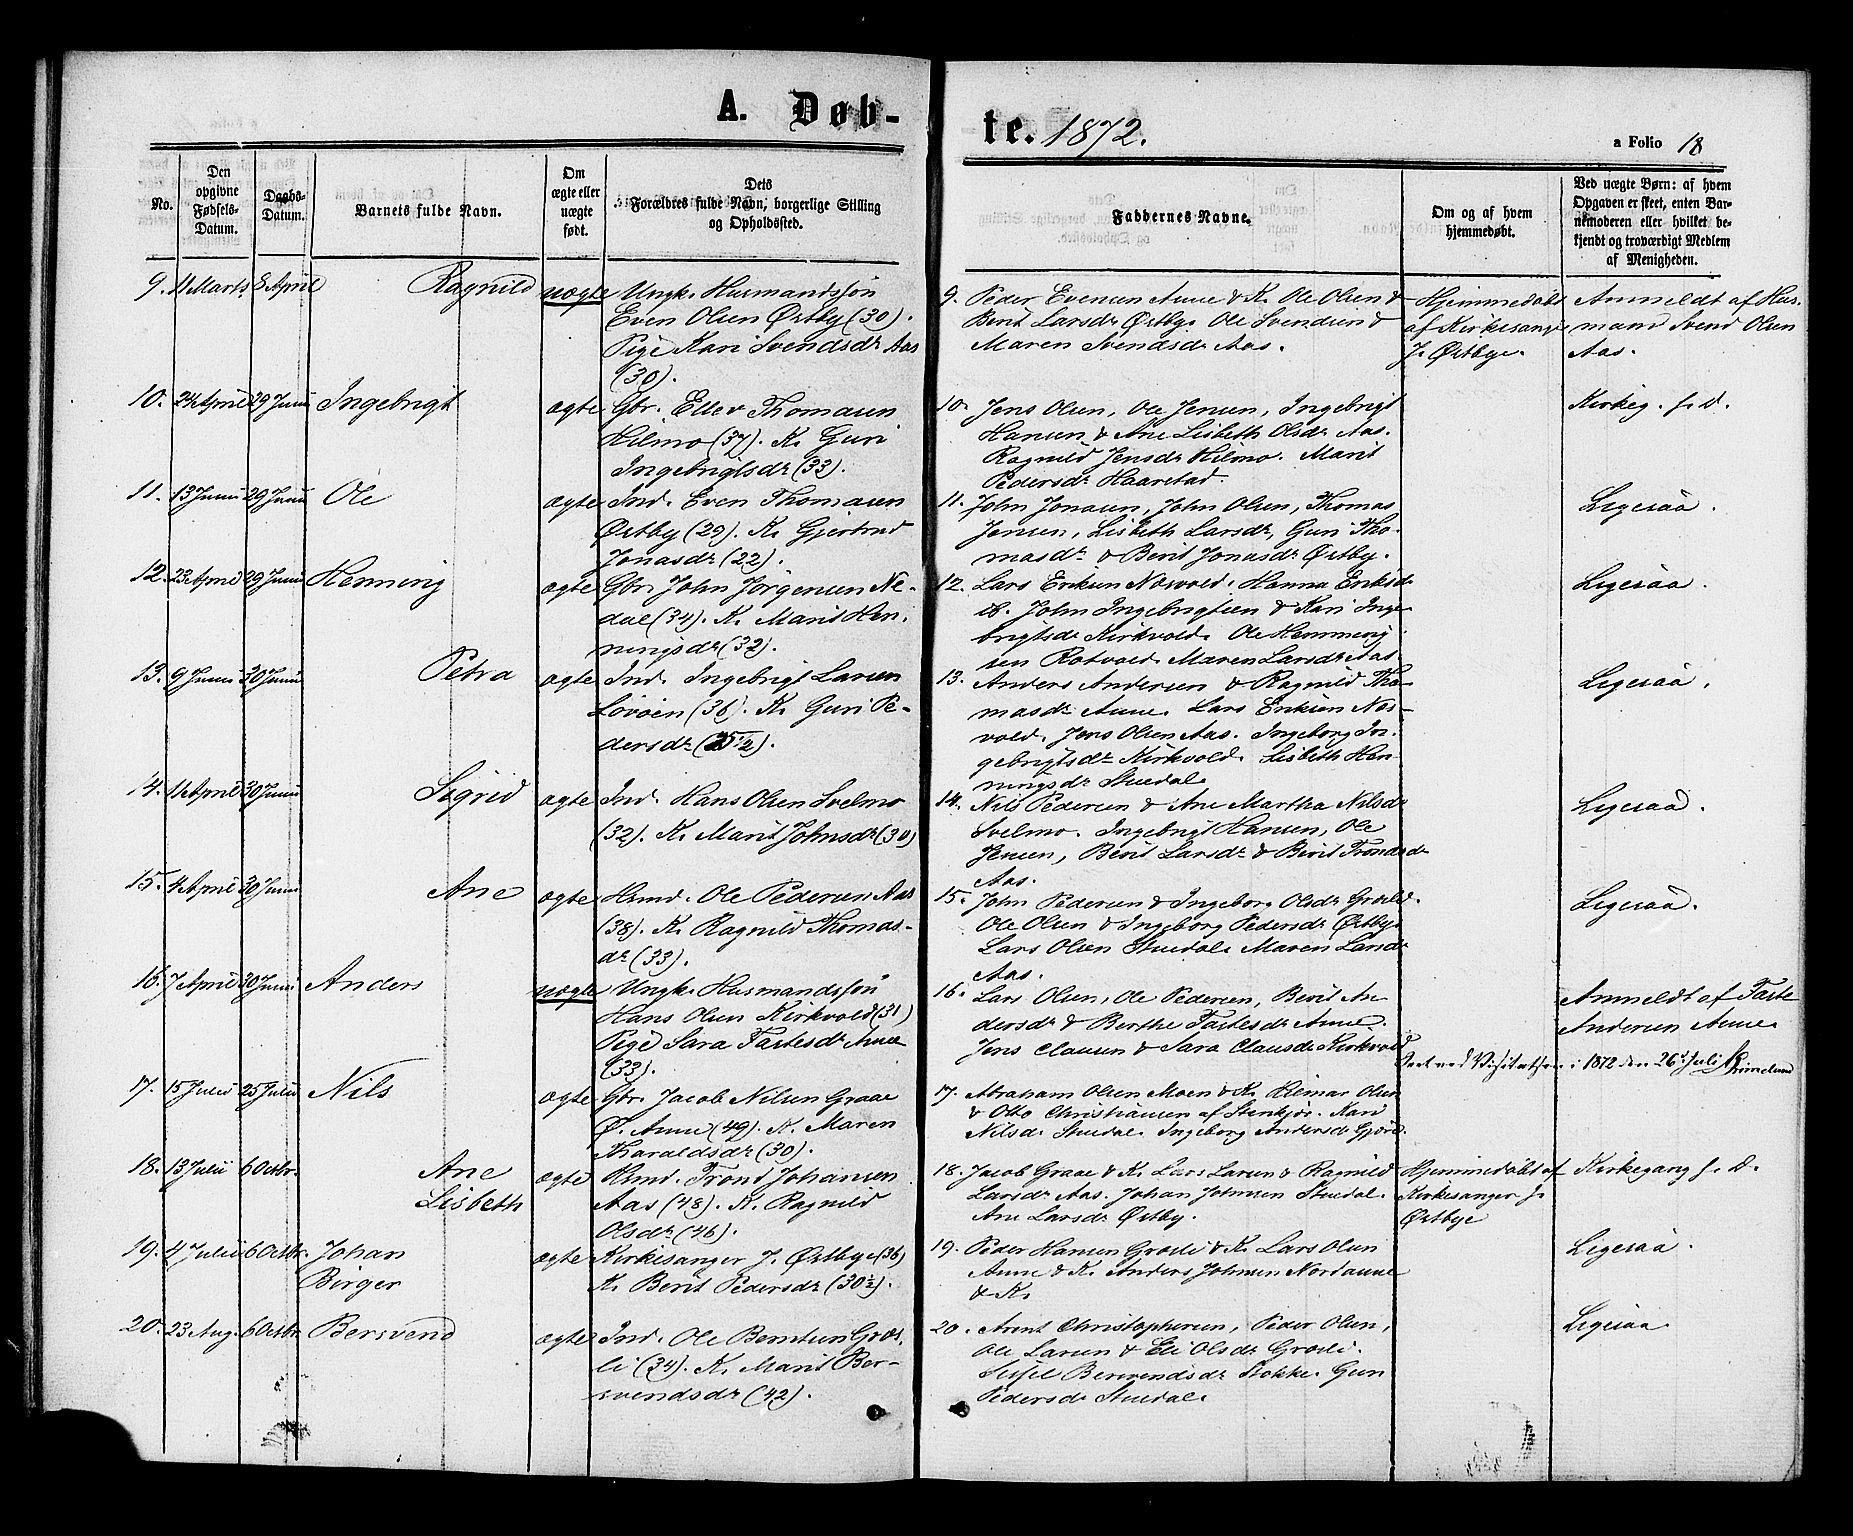 A. Døb-
te. 1872.
a Folio 18
No.
Den opgivne Fødsels-Datum.
Daabs-Datum.
Barnets fulde Navn.
Om ægte eller uægte født.
Dets Forældres fulde Navn, borgerlige Stilling og Opholdssted.
Faddernes Navne.
Om og af hvem hjemmedøbt.
Ved uægte Børn: af hvem Opgaven er skeet, enten Barnemoderen eller hvilket bekjendt og troværdigt Medlem af Menigheden.
9. 11 Marts 8 April Ragnild uægte Ungk. Husmandssøn
Even Olsen Østby (30).
Pige Kari Svendsdr Aas
(30).
9. Peder Evensen Aune & K. Ole Olsen &
Berit Larsdr Østby. Ole Svendsen &
Maren Svendsdr Aas.
Hjemmedøbt
af Kirkesanger
J. Østbye.
Anmeldt af Hus-
mand Svend Olsen
Aas.
10. 24 April 29 Juni Ingebrigt ægte Gbr. Ellev Thomasen
Hilmo (37). K. Guri
Ingebrigtsdr (33).
10. Jens Olsen, Ole Jensen, Ingebrigt
Hansen & Ane Lisbeth Olsdr Aas.
Ragnild Jensdr Hilmo. Marit
Pedersdr Haarstad.
Kirkeg. s. d.
11. 13 Juni 29 Juni Ole ægte Ind. Even Thomasen
Østby (29). K. Gjertrud
Jonasdr (22).
11. John Jonasen, John Olsen, Thomas
Jensen, Lisbeth Larsdr, Guri Tho-
masdr & Berit Jonasdr Østby.
Ligesaa.
12. 23 April 29 Juni Henning ægte Gbr. John Jørgensen Ne-
dal (34). K. Marit Hen-
ningsdr (32).
12. Lars Eriksen Nosvold. Hanna Eriksdr
ib. John Ingebrigtsen & Kari Inge-
brigtsdr Kirkvold. Ole Hemming-
sen Rotvold. Maren Larsdr Aas.
Ligesaa.
13. 9 Juni 30 Juni Petra ægte Ind. Ingebrigt Larsen
Løvøen (36). K. Guri Pe-
dersdr (25½).
13. Anders Andersen & Ragnild Tho-
masdr Aune. Lars Eriksen Nos-
vold. Jens Olsen Aas. Ingeborg In-
gebrigtsdr Kirkvold. Lisbeth Hen-
ningsdr Stuedal.
Ligesaa.
14. 11 April 30 Juni Sigrid ægte Ind. Hans Olsen Svelmo
(32). K. Marit Johnsdr (30)
14. Nils Pedersen & Ane Martha Nilsdr
Svelmo. Ingebrigt Hansen, Ole
Jensen, Berit Larsdr & Berit Trondsdr
Aas.
Ligesaa.
15. 4 April 30 Juni Ane ægte Hsmd. Ole Pedersen Aas
(38). K. Ragnild Thomas-
dr (33).
15. John Pedersen & Ingebor. Olsdr Grøsli.
Ole Olsen & Ingeborg Pedersdr Østby.
Lars Olsen Stuedal. Maren Larsdr
Aas.
Ligesaa.
16. 7 April 30 Juni Anders uægte Ungk. Husmandssøn
Hans Olsen Kirkvold (31)
Pige Sara Tastesdr Aune
(33).
16. Lars Olsen, Ole Pedersen, Berit An-
dersdr & Berthe Tastesdr Aune.
Jens Clausen & Sara Clausdr Kirkvold
Anmeldt af Taste
Andersen Aune.
Seet ved Visitatsen i 1872 den 26de Juli
17. 15 Juli 25 Juli Nils ægte Gbr. Jacob Nilsen Graae
Ø. Aune (49). K. Maren
Haraldsdr (30).
17. Abraham Olsen Moen & K. Hilmar Olsen
& Otto Christiansen af Stenkjør. Kari
Nilsdr Stuedal. Ingeborg Andersdr Gjøre.
18. 13 Juli 6 Octbr. Ane
Lisbeth ægte Hsmd. Trond Johansen
Aas (48). K. Ragnild
Olsdr (46).
18. Jacob Graae & K. Lars Larsen & Ragnild
Larsdr Aas. Johan Johnsen Stuedal.
Ane Larsdr Østby.
Hjemmedøbt af
Kirkesanger J.
Østbye
Kirkegang s. d.
19. 4 Juli 6 Octbr. Johan
Birger ægte Kirkesanger J. Østbye (36)
K. Berit Pedersdr (30½).
19. Peder Hansen Grøsli & K. Lars Olsen
Aune & K. Anders Johnsen Nordaune
& K.
Ligesaa.
20. 23 Aug. 6 Octbr Bersvend ægte Ind. Ole Berntsen Grøs-
li (34). K. Marit Ber-
svendsdr (42).
20. Arent Christophersen, Peder Olsen,
Ole Larsen & Eli Olsdr Grøsli.
Sissel Bersvendsdr Stokke. Guri
Pedersdr Stuedal.
Ligesaa.